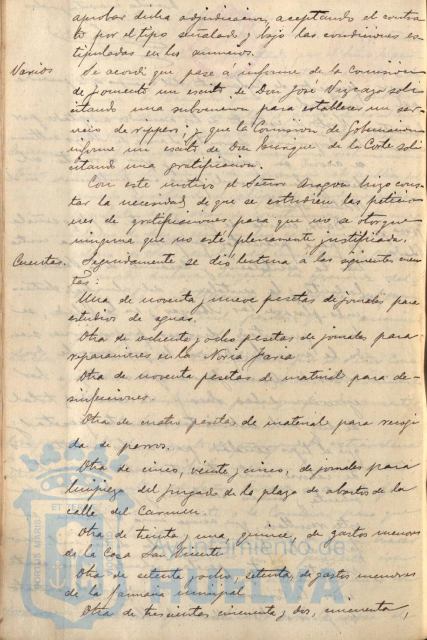 aprobar dicha adjudicacion, aceptando el contra-
to por el tipo señalado y bajo las condiciones es-
tipuladas en los anuncios.
Varios Se acordó que pase á informe de la Comision
de fomento un escrito de Don José Vizcaya soli-
citando una subvencion para establecer un ser-
vicio de rippers; y que la Comision de Gobernacion
informe un escrito de Don Enrique de la Corte soli-
citando una gratificacion.
Con este motivo el Señor Aragon hizo cons-
tar la necesidad de que se estudien las peticio-
nes de gratificaciones para que no se otorgue
ninguna que no esté plenamente justificada.
Cuentas. Seguidamente se dió lectura a las siguientes cuen-
tas:
Una de noventa y nueve pesetas de jornales para
estudios de aguas.
Otra de ochenta y ocho pesetas de jornales para
reparaciones en la Noria
Otra de noventa pesetas de material para de-
sinfecciones.
Otra de cuatro pesetas de material para recogi-
da de perros.
Otra de cinco, veinte y cinco, de jornales para
limpieza del juzgado de la plaza de abastos de la
calle del Carmen.
Otra de treinta y una, quince, de gastos menores
de la Casa San Vicente
Otra de setenta y ocho, setenta, de gastos menores
de la farmacia municipal
Otra de trescientas cincuenta y dos, cincuenta,
Ayuntamiento de
HUELVA